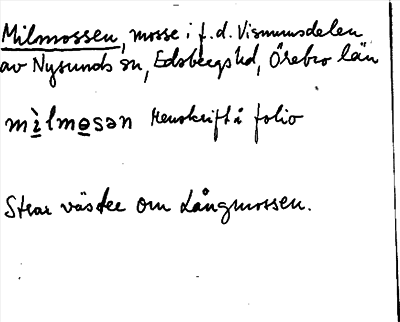 Milmossen, mosse i f.d. Vismumsdelen
av Nysunds sn, Edsbergs hd, Örebro län
mìlmosən Renskrift i folio
Strax väster om Långmossen.